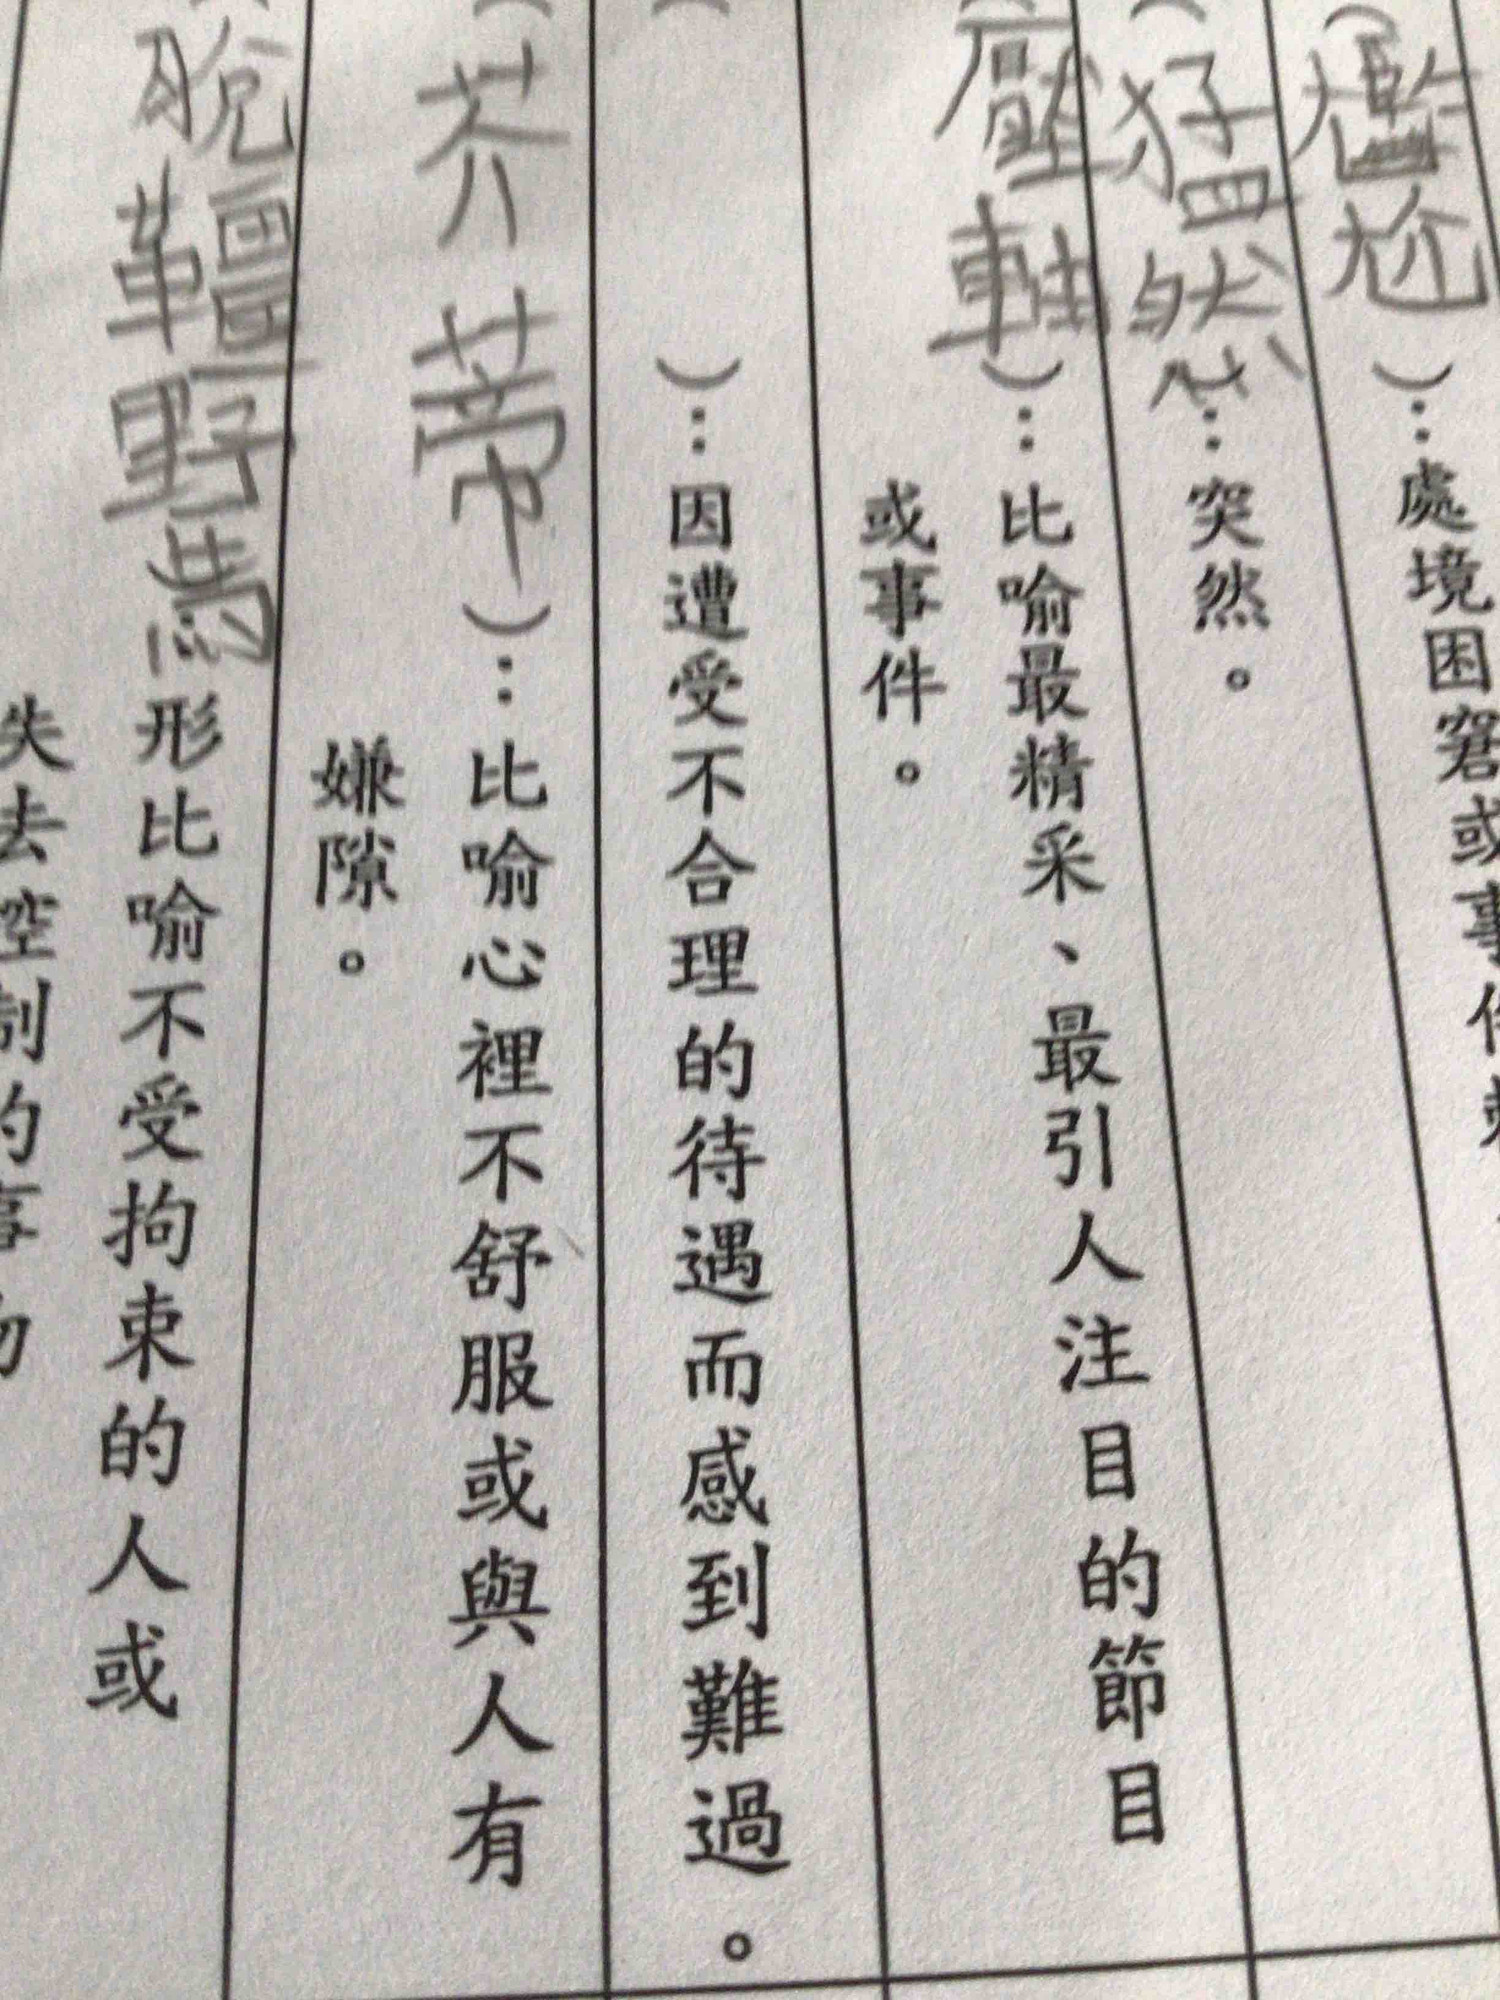 （尷尬）：處境困窘或事
（猛然）：突然。
（壓軸）：比喻最精采、最引人注目的節目
或事件。
（）：因遭受不合理的待遇而感到難過。
（芥蒂）：比喻心裡不舒服或與人有
嫌隙。
脫韁野馬形比喻不受拘束的人或
失去控制的事物